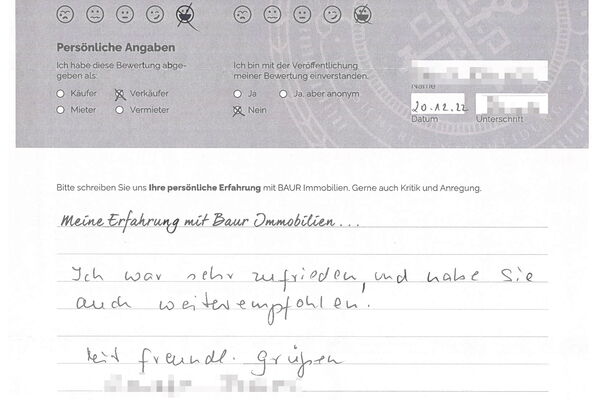 Persönliche Angaben
Ich habe diese Bewertung abge-
geben als:
Käufer
Verkäufer
Mieter
Vermieter
Ich bin mit der Veröffentlichung
meiner Bewertung einverstanden.
Ja
Ja, aber anonym
Nein
Name
20.12.22
Datum
Unterschrift
Bitte schreiben Sie uns Ihre persönliche Erfahrung mit BAUR Immobilien. Gerne auch Kritik und Anregung.
Meine Erfahrung mit Baur Immobilien...
Ich war sehr zufrieden, und habe Sie
auch weiterempfohlen.
Mit freundl. Grüßen